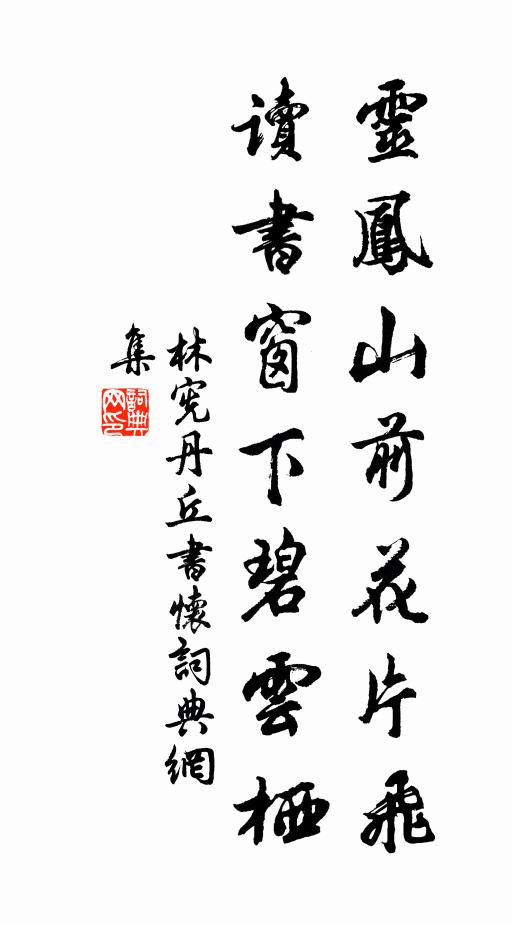 靈鳳山前花片飛
讀書窗下碧雲栖
林宪丹丘書懷詞典網
集
詞典
网印